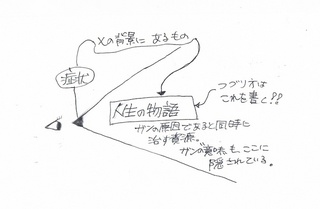 Xの背景にあるもの
症状
人生の物語
つブリオは
これを書く?!
ガンの原因であると同時に
治す資源。
ガンの意味も、ここに
隠されている。